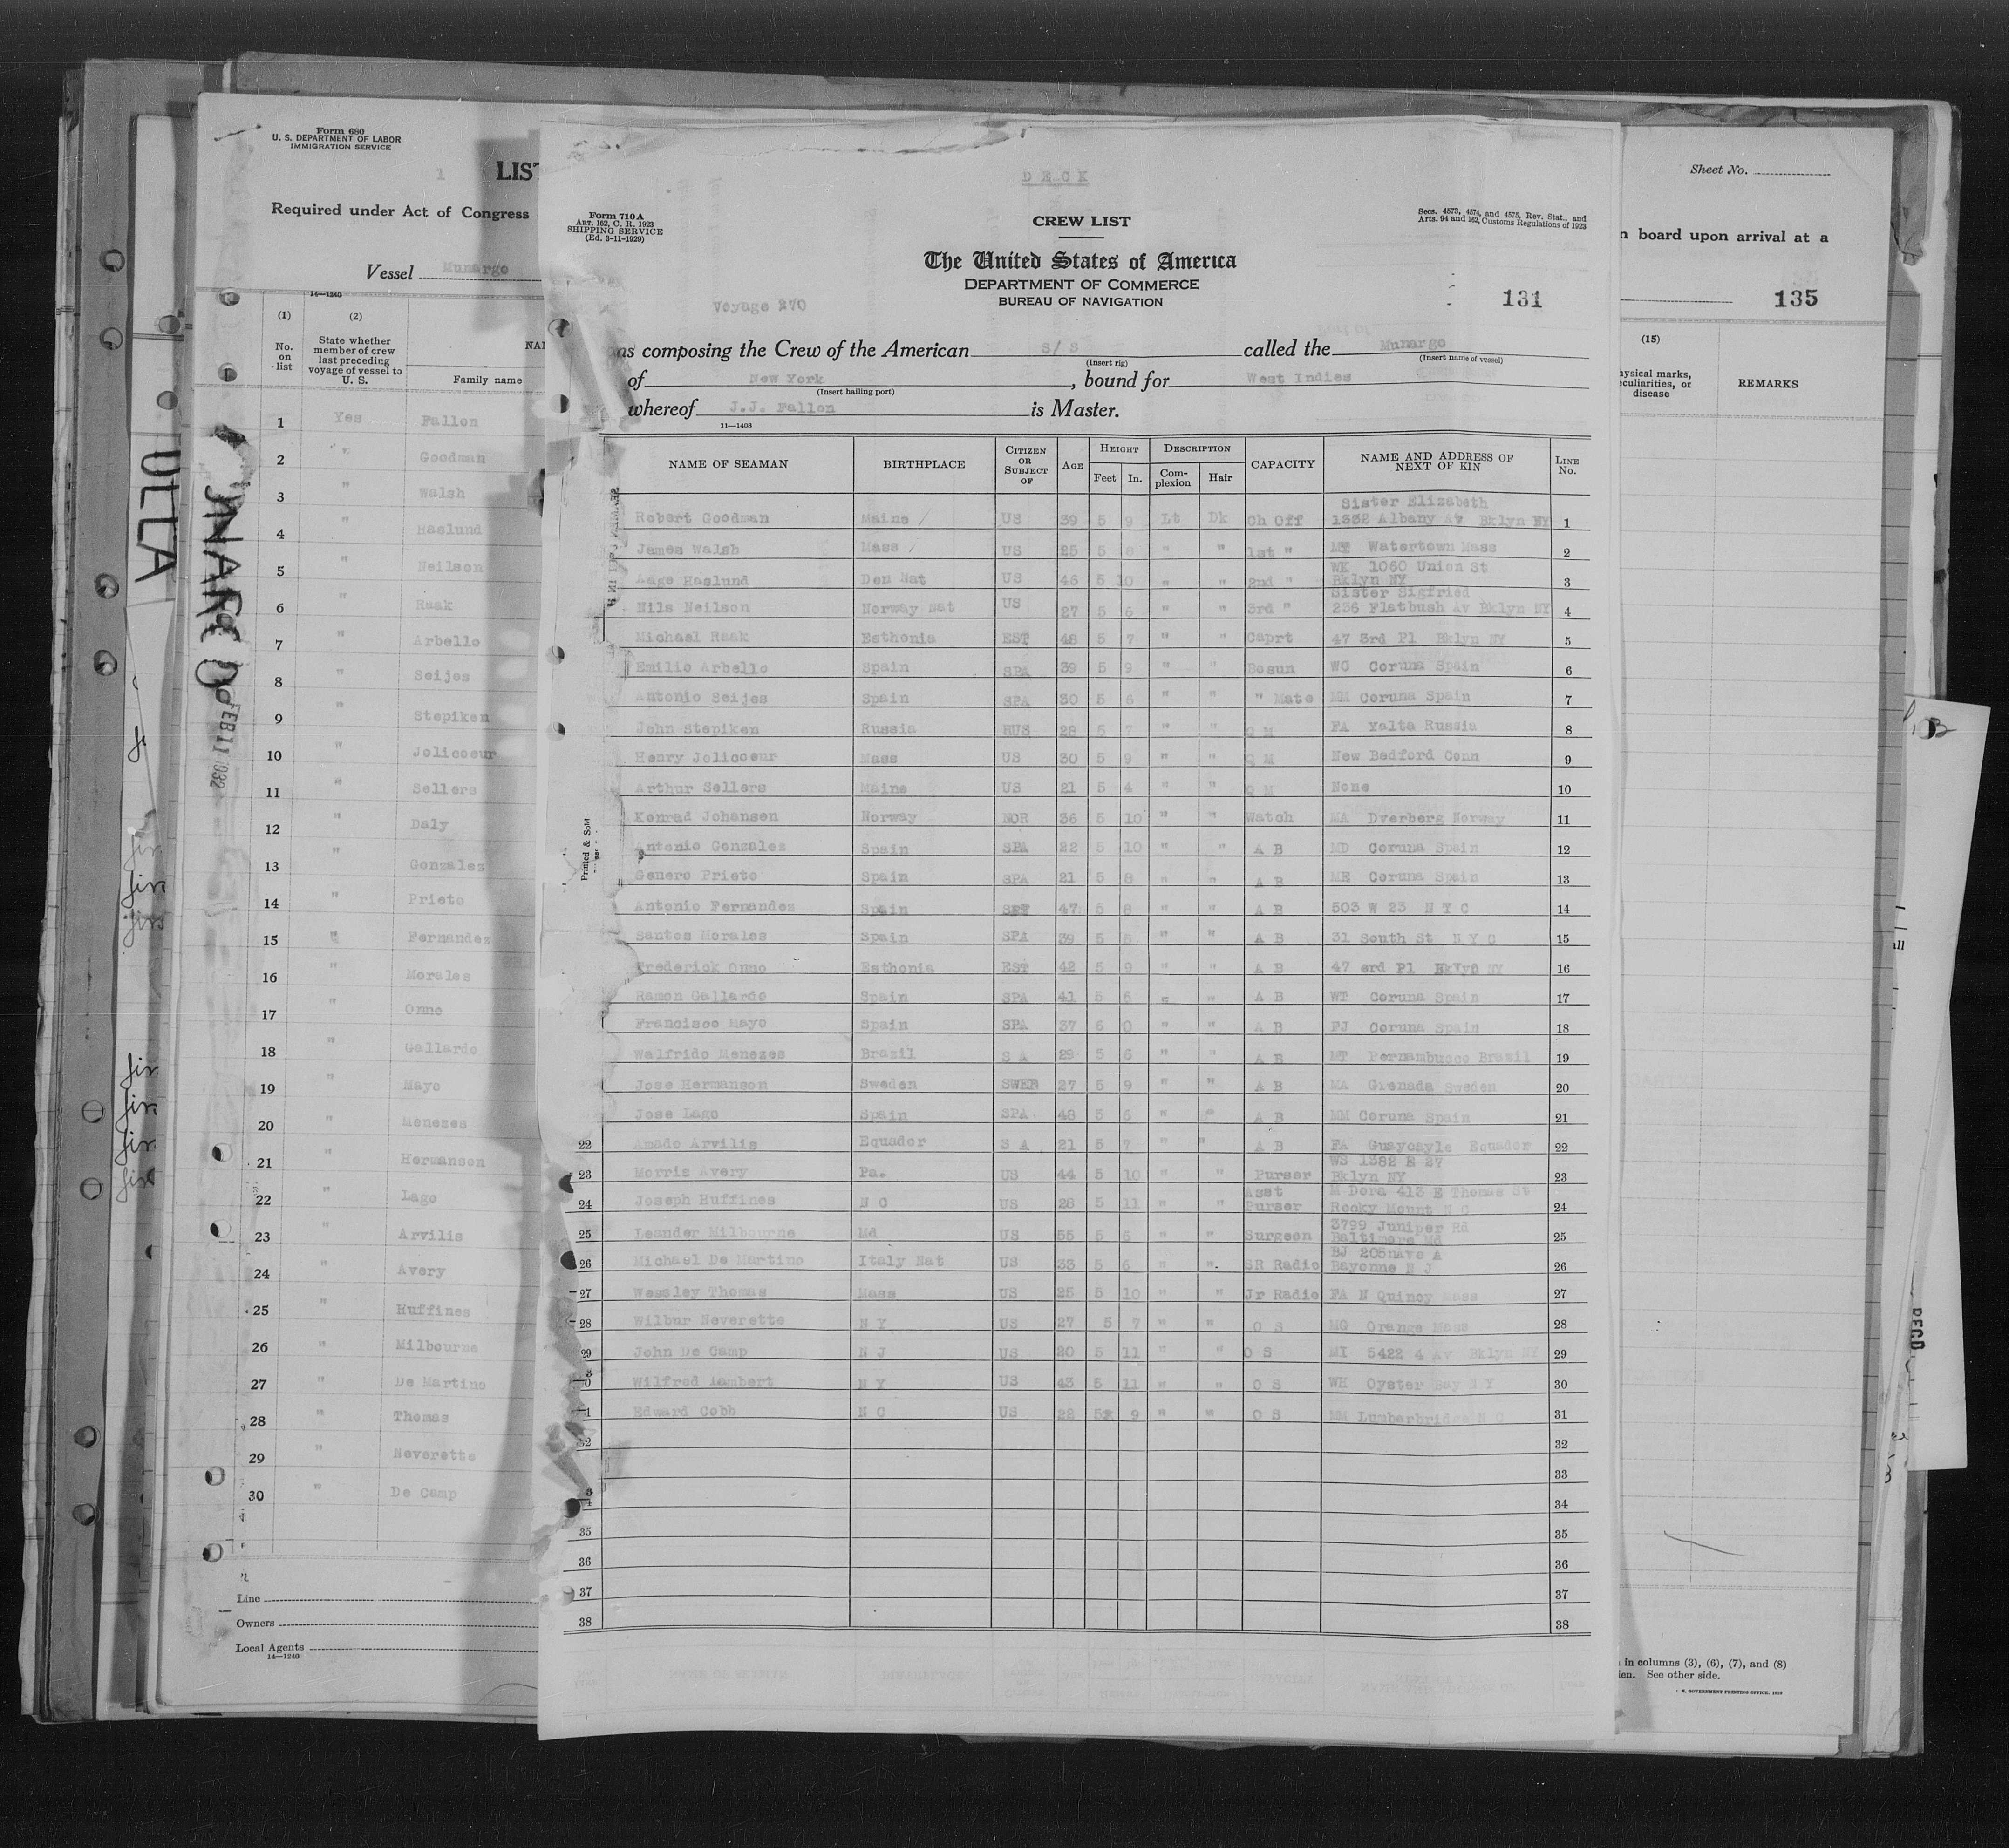 Form 680
U. S. DEPARTMENT OF LABOR
IMMIGRATION SERVICE
1 LIST
Required under Act of Congress
Vessel Munargo
14—1240
(1) (2)
No. on list
State whether member of crew last preceding voyage of vessel to U. S.
Family name
1 Yes Fallon
2 " Goodman
3 " Walsh
4 " Haslund
5 " Neilson
6 " Raak
7 " Arbello
8 " Seijes
9 " Stepiken
10 " Jolicoeur
11 " Sellers
12 " Daly
13 " Gonzales
14 " Prieto
15 " Fernandez
16 " Morales
17 " Onno
18 " Gallardo
19 " Mayo
20 " Menezes
21 " Hermanson
22 " Lago
23 " Arvilis
24 " Avery
25 " Huffines
26 " Milbourne
27 " De Martino
28 " Thomas
29 " Neverette
30 " De Camp
Line
Owners
Local Agents
14—1240
ULLA
FEB 11 1932
DECK
Form 710 A
Art. 162, C. R. 1923
SHIPPING SERVICE
(Ed. 3-11-1929)
CREW LIST
Secs. 4573, 4574, and 4575, Rev. Stat., and
Arts. 94 and 162, Customs Regulations of 1923
The United States of America
DEPARTMENT OF COMMERCE
BUREAU OF NAVIGATION
Voyage 270
131
ns composing the Crew of the American S/S called the Munargo
(Insert rig) (Insert name of vessel)
of New York, bound for West Indies
(Insert hailing port)
whereof J.J. Fallon is Master.
11—1408
NAME OF SEAMAN BIRTHPLACE CITIZEN OR SUBJECT OF AGE HEIGHT Feet In. DESCRIPTION Complexion Hair CAPACITY NAME AND ADDRESS OF NEXT OF KIN LINE No.
Sister Elizabeth
Robert Goodman Maine US 39 5 9 Lt Dk Ch Off 1332 Albany Av Bklyn NY 1
James Walsh Mass US 25 5 8 " " 1st " MT Watertown Mass 2
WK 1060 Union St
Aage Haslund Den Nat US 46 5 10 " " 2nd " Bklyn NY 3
Sister Sigfried
Nils Neilson Norway Nat US 27 5 6 " " 3rd " 236 Flatbush Av Bklyn NY 4
Michael Raak Esthonia EST 48 5 7 " " Caprt 47 3rd Pl Bklyn NY 5
Emilio Arbello Spain SPA 39 5 9 " " Bosun WC Coruna Spain 6
Antonio Seijes Spain SPA 30 5 6 " " " Mate MM Coruna Spain 7
John Stepiken Russia RUS 28 5 7 " " Q M FA Yalta Russia 8
Henry Jolicoeur Mass US 30 5 9 " " Q M New Bedford Conn 9
Arthur Sellers Maine US 21 5 4 " " Q M None 10
Konrad Johansen Norway NOR 36 5 10 " " Watch MA Dverberg Norway 11
Antonio Gonzalez Spain SPA 22 5 10 " " A B MD Coruna Spain 12
Genero Prieto Spain SPA 21 5 8 " " A B ME Coruna Spain 13
Antonio Fernandez Spain 47 5 8 " " A B 503 W 23 N Y C 14
Santos Morales Spain SPA 39 5 " " A B 31 South St N Y C 15
Frederick Onno Esthonia EST 42 5 9 " " A B 47 erd Pl Bklyn NY 16
Ramon Gallardo Spain SPA 41 5 6 " " A B WT Coruna Spain 17
Francisco Mayo Spain SPA 37 6 0 " " A B PJ Coruna Spain 18
Walfrido Menezes Brazil S A 29 5 6 " " A B MT Pernambusco Brazil 19
Jose Hermanson Sweden SWED 27 5 9 " " A B MA Grenada Sweden 20
Jose Lago Spain SPA 48 5 6 " " A B MM Coruna Spain 21
22 Amado Arvilis Equador S A 21 5 7 " " A B FA Guaycayle Equador 22
WS 1382 E 27
23 Morris Avery Pa. US 44 5 10 " " Purser Bklyn NY 23
Asst M Dora 413 E Thomas St
24 Joseph Huffines N C US 28 5 11 " " Purser Rocky Mount N C 24
3799 Juniper Rd
25 Leander Milbourne Md US 55 5 6 " " Surgeon Baltimore Md 25
BJ 205 Ave A
26 Michael De Martino Italy Nat US 33 5 6 " " SR Radio Bayonne N J 26
27 Wessley Thomas Mass US 25 5 10 " " Jr Radio FA N Quincy Mass 27
28 Wilbur Neverette N Y US 27 5 7 " " O S MG Orange Mass 28
29 John De Camp N J US 20 5 11 " " O S MI 5422 4 Av Bklyn NY 29
Wilfred Lambert N Y US 43 5 11 " " O S WH Oyster Bay N Y 30
Edward Cobb N C US 22 5 9 " " O S MM Lumberbridge N C 31
32
33
34
35 35
36 36
37 37
38 38
Printed & Sold
Sheet No.
n board upon arrival at a
135
(15)
ysical marks,
culiarities, or
disease
REMARKS
in columns (3), (6), (7), and (8)
ien. See other side.
GOVERNMENT PRINTING OFFICE
RECD